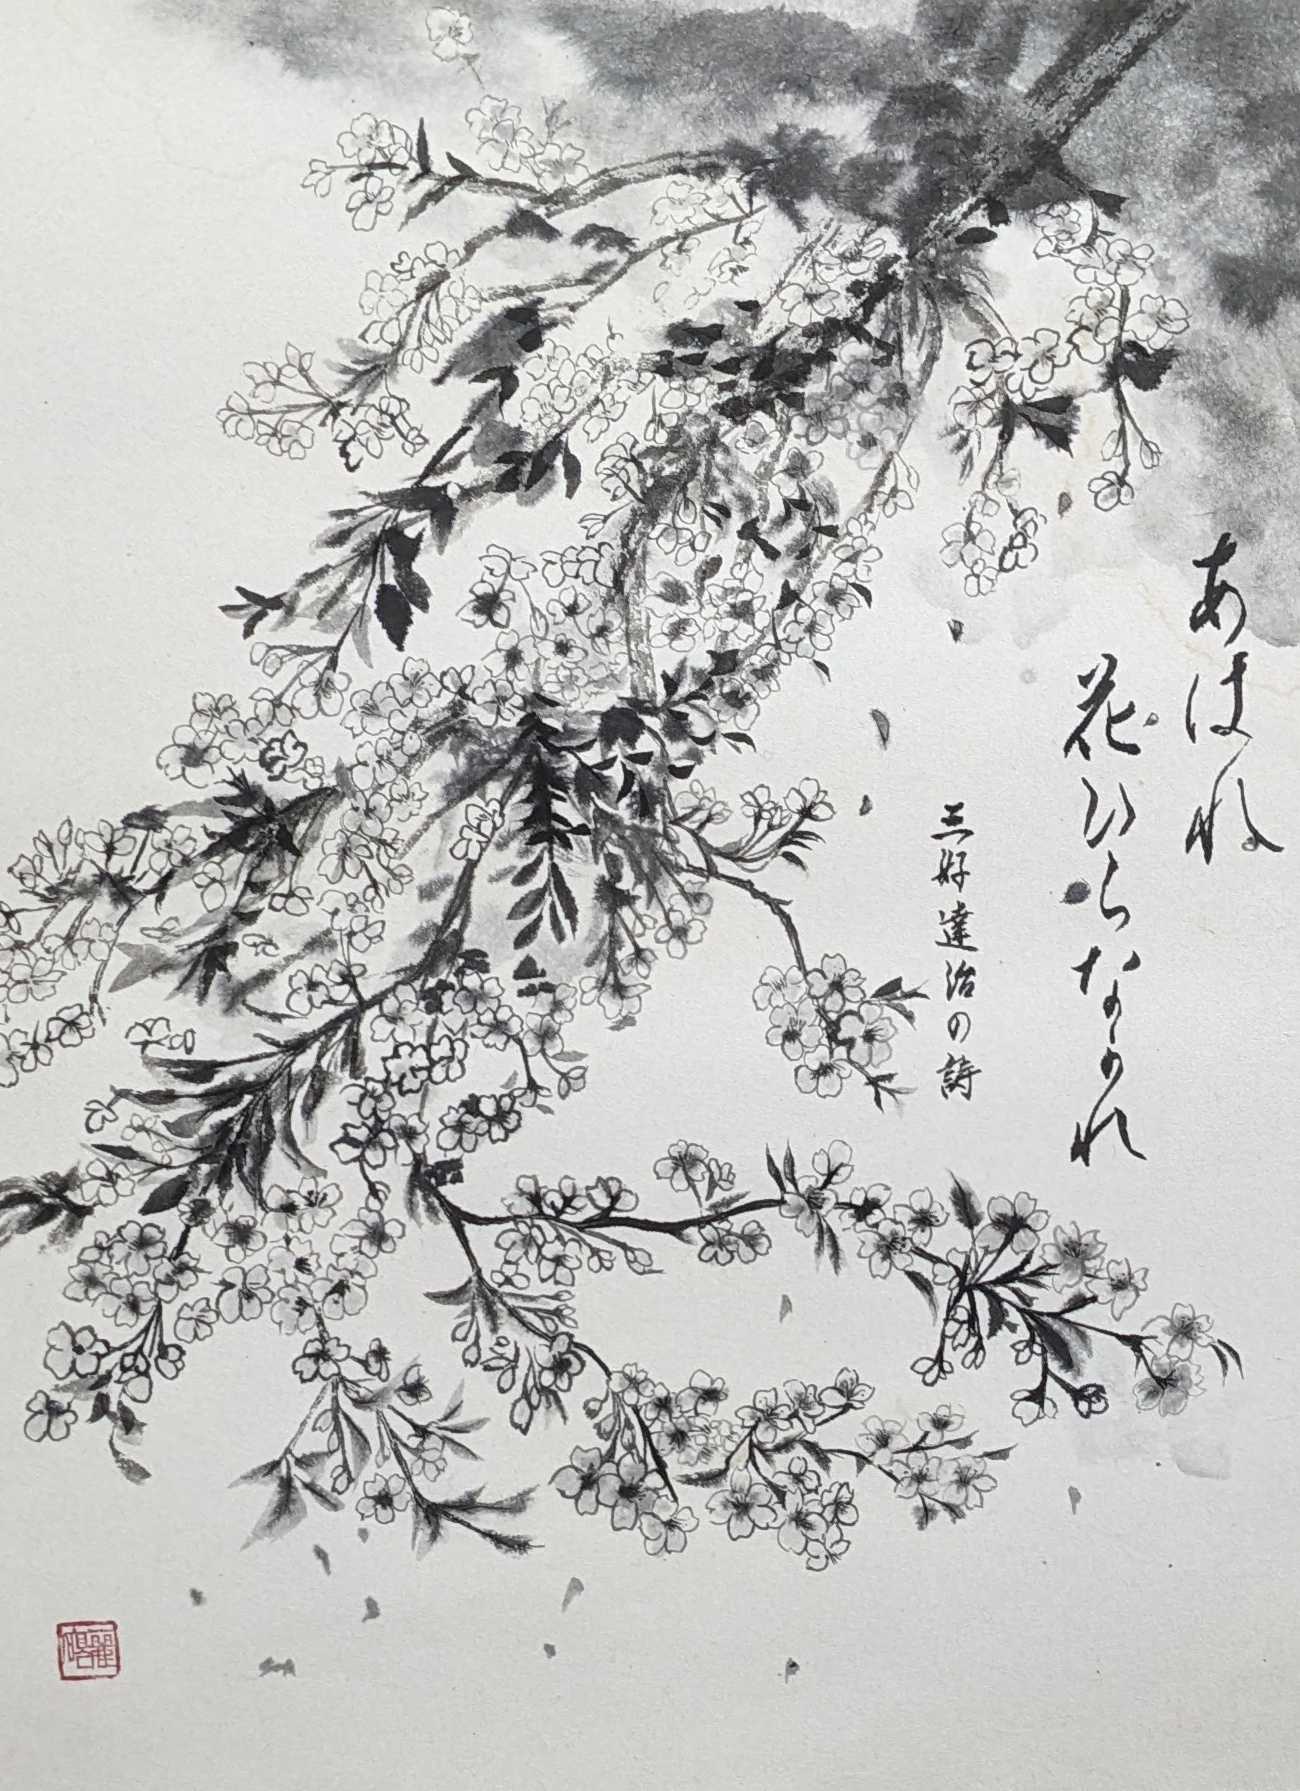 あはれ
花びらながれ
三好達治の詩